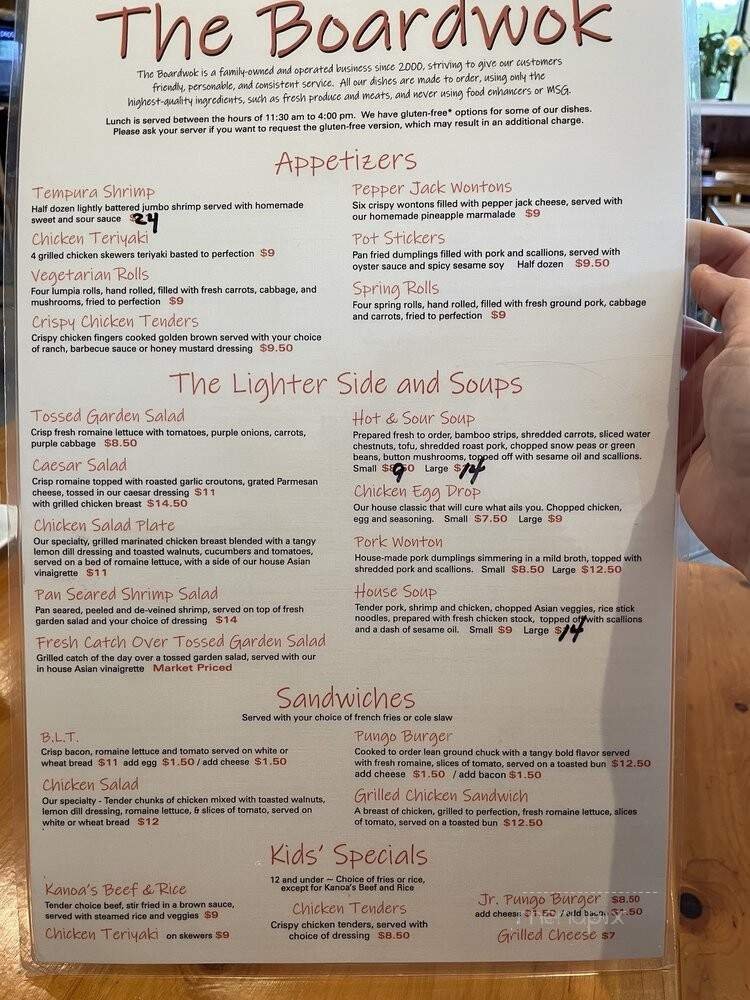 The Boardwok
The Boardwok is a family-owned and operated business since 2000, striving to give our customers
friendly, personable, and consistent service. All our dishes are made to order, using only the
highest-quality ingredients, such as fresh produce and meats, and never using food enhancers or MSG.
Lunch is served between the hours of 11:30 am to 4:00 pm. We have gluten-free* options for some of our dishes.
Please ask your server if you want to request the gluten-free version, which may result in an additional charge.
Appetizers
Tempura Shrimp
Half dozen lightly battered jumbo shrimp served with homemade
sweet and sour sauce 24
Chicken Teriyaki
4 grilled chicken skewers teriyaki basted to perfection $9
Vegetarian Rolls
Four lumpia rolls, hand rolled, filled with fresh carrots, cabbage, and
mushrooms, fried to perfection $9
Crispy Chicken Tenders
Crispy chicken fingers cooked golden brown served with your choice
of ranch, barbecue sauce or honey mustard dressing $9.50
Pepper Jack Wontons
Six crispy wontons filled with pepper jack cheese, served with
our homemade pineapple marmalade $9
Pot Stickers
Pan fried dumplings filled with pork and scallions, served with
oyster sauce and spicy sesame soy Half dozen $9.50
Spring Rolls
Four spring rolls, hand rolled, filled with fresh ground pork, cabbage
and carrots, fried to perfection $9
The Lighter Side and Soups
Tossed Garden Salad
Crisp fresh romaine lettuce with tomatoes, purple onions, carrots,
purple cabbage $8.50
Caesar Salad
Crisp romaine topped with roasted garlic croutons, grated Parmesan
cheese, tossed in our caesar dressing $11
with grilled chicken breast $14.50
Chicken Salad Plate
Our specialty, grilled marinated chicken breast blended with a tangy
lemon dill dressing and toasted walnuts, cucumbers and tomatoes,
served on a bed of romaine lettuce, with a side of our house Asian
vinaigrette $11
Pan Seared Shrimp Salad
Pan seared, peeled and de-veined shrimp, served on top of fresh
garden salad and your choice of dressing $14
Fresh Catch Over Tossed Garden Salad
Grilled catch of the day over a tossed garden salad, served with our
in house Asian vinaigrette Market Priced
Hot & Sour Soup
Prepared fresh to order, bamboo strips, shredded carrots, sliced water
chestnuts, tofu, shredded roast pork, chopped snow peas or green
beans, button mushrooms, topped off with sesame oil and scallions.
Small $9 Large $14
Chicken Egg Drop
Our house classic that will cure what ails you. Chopped chicken,
egg and seasoning. Small $7.50 Large $9
Pork Wonton
House-made pork dumplings simmering in a mild broth, topped with
shredded pork and scallions. Small $8.50 Large $12.50
House Soup
Tender pork, shrimp and chicken, chopped Asian veggies, rice stick
noodles, prepared with fresh chicken stock, topped off with scallions
and a dash of sesame oil. Small $9 Large $14
Sandwiches
Served with your choice of french fries or cole slaw
B.L.T.
Crisp bacon, romaine lettuce and tomato served on white or
wheat bread $11 add egg $1.50 / add cheese $1.50
Chicken Salad
Our specialty - Tender chunks of chicken mixed with toasted walnuts,
lemon dill dressing, romaine lettuce, & slices of tomato, served on
white or wheat bread $12
Pungo Burger
Cooked to order lean ground chuck with a tangy bold flavor served
with fresh romaine, slices of tomato, served on a toasted bun $12.50
add cheese $1.50 / add bacon $1.50
Grilled Chicken Sandwich
A breast of chicken, grilled to perfection, fresh romaine lettuce, slices
of tomato, served on a toasted bun $12.50
Kids' Specials
12 and under ~ Choice of fries or rice,
except for Kanoa's Beef and Rice
Kanoa's Beef & Rice
Tender choice beef, stir fried in a brown sauce,
served with steamed rice and veggies $9
Chicken Teriyaki on skewers $9
Chicken Tenders
Crispy chicken tenders, served with
choice of dressing $8.50
Jr. Pungo Burger $8.50
add cheese $1.50 / add bacon $1.50
Grilled Cheese $7
menupix